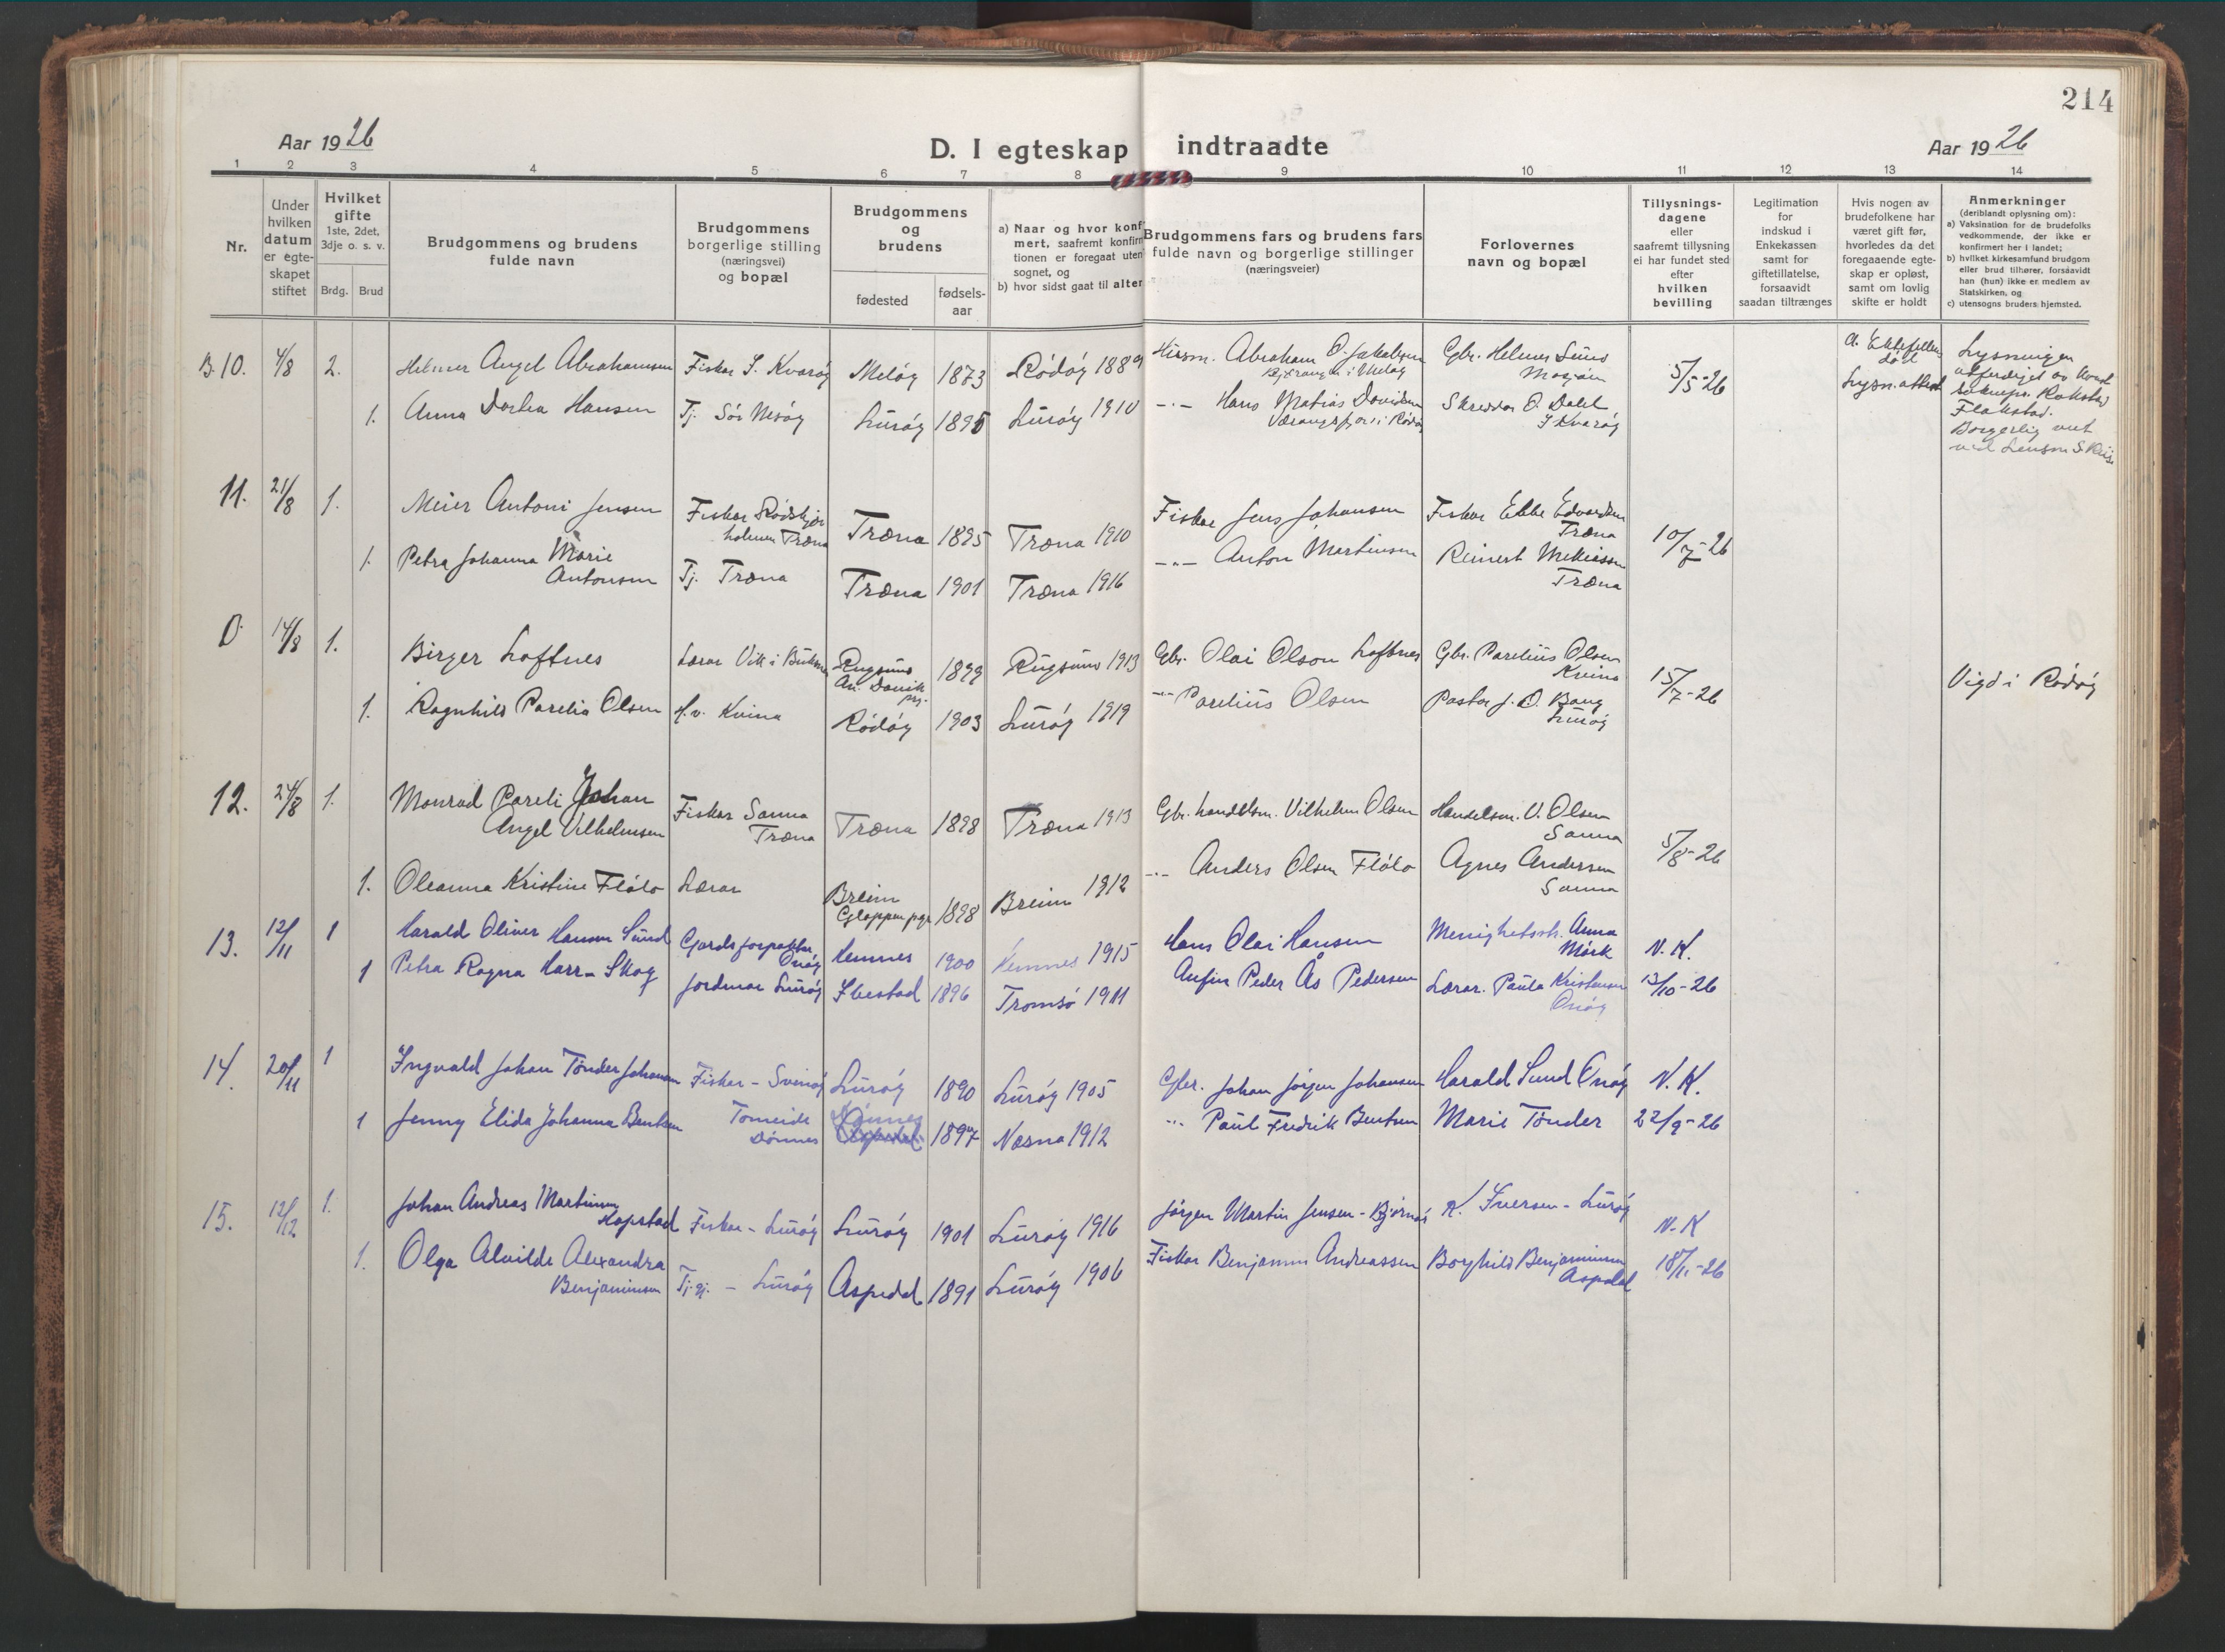 214
Aar 1926
D. I egteskap indtraadte
Aar 1926
1 2 3 4 5 6 7 8 9 10 11 12 13 14
Nr.
Under hvilken datum er egte-skapet stiftet
Hvilket gifte
1ste, 2det, 3dje o. s. v.
Brdg. Brud
Brudgommens og brudens fulde navn
Brudgommens borgerlige stilling (næringsvei) og bopæl
Brudgommens og brudens
fødested
fødsels-aar
a) Naar og hvor konf
mert, saafremt konfirm
tionen er foregaat uten
sognet, og
b) hvor sidst gaat til alter
Brudgommens fars og brudens fars
fulde navn og borgerlige stillinger
(næringsveier)
Forlovernes
navn og bopæl
Tillysnings-
dagene
eller
saafremt tillysning
ei har fundet sted
efter
hvilken
bevilling
Legitimation
for
indskud i
Enkekassen
samt for
giftetillatelse,
forsaavidt
saadan tiltrænges
Hvis nogen av
brudefolkene har
været gift før,
hvorledes da det
foregaaende egte-
skap er opløst,
samt om lovlig
skifte er holdt
Anmerkninger
(deriblandt oplysning om):
a) Vaksination for de brudefolks
vedkommende, der ikke er
konfirmert her i landet;
b) hvilket kirkesamfund brudgom
eller brud tilhører, forsaavidt
han (hun) ikke er medlem av
Statskirken, og
c) utensogns bruders hjemsted.
B.10. 4/8 2. Helmer Angel Abrahamsen Fisker I. Kvarøy Meløy 1873 Rødøy 1889 Abraham O. Jakobsen Gbr. Helmer 5/5-26
1. Anna Dorhea Hansen Tj. Sør Nesøy Lurøy 1895 Lurøy 1910 -"- Hans Matias Davidsen Skredder O. Dahl I Kvarøy
Lysningen
Flakstad.
Borgerlig viet
11. 21/8 1. Meier Antoni Jensen Fisker Rødskjærholmen Træna Træna 1895 Træna 1910 Fisker Jens Johansen Fisker Ebbe Edvardsen Træna 10/7-26
1. Petra Johanna Marie Antonsen Tj. Træna Træna 1901 Træna 1916 -"- Anton Martinsen Reinert Træna
0 14/8 1. Birger Loftnes Lærer Vik i Rugsund 1899 Rugsund 1913 Gbr. Olai Olson Loftnes Gbr. Parelius Olsen Kvina 15/7-26
1. Ragnhild Parelia Olsen H.v. Kvina Rødøy 1903 Lurøy 1919 -"- Parelius Olsen Pastor J. O. Bang Lurøy
Vigd i Rødøy
12. 24/8 1. Monrad Pareli Johan Angel Vilhelmsen Fisker Sanna Træna Træna 1898 Træna 1913 Gbr. handelsm. Vilhelm Olsen Handelsm. V. Olsen Sanna 5/8-26
1. Oleanna Kristine Fløtø Lærer Breim Gloppen pgj. 1898 Breim 1912 -"- Anders Olsen Fløtø Agnes Andersen Sanna
13. 12/11 1 Harald Oliver Hansen Sund Gardsforpakter Onøy Hemnes 1900 Hemnes 1915 Hans Olai Hansen Menighetssøs. Anna Mørk N. K.
1 Petra Ragna Harr-Skog Jordmor Lurøy Ibestad 1896 Tromsø 1911 Peder Ås Pedersen Lærer. Paula Kristensen Onøy 13/10-26
14. 20/11 1 Ingvald Johan Tønder Johansen Fisker - Svinøy Lurøy 1890 Lurøy 1905 Gbr. Johan Jørgen Johansen Harald Sund Onøy N. K.
1 Jenny Elida Johanna Bentsen Tomeide Dønnes Dønnes 1897 Nesna 1912 -"- Paul Fredrik Bentsen Marie Tønder 22/9-26
15. 12/12 1. Johan Andreas Martinsen Hopstad Fisker - Lurøy Lurøy 1901 Lurøy 1916 Jørgen Martin Jensen - Bjørnøs K. Iversen - Lurøy N-K
1. Olga Alvilde Alexandra Benjaminsen Tj.gj. - Lurøy Aspedal 1891 Lurøy 1906 Fisker Benjamin Andreassen Borghild Benjaminsen Aspdal 18/11-26